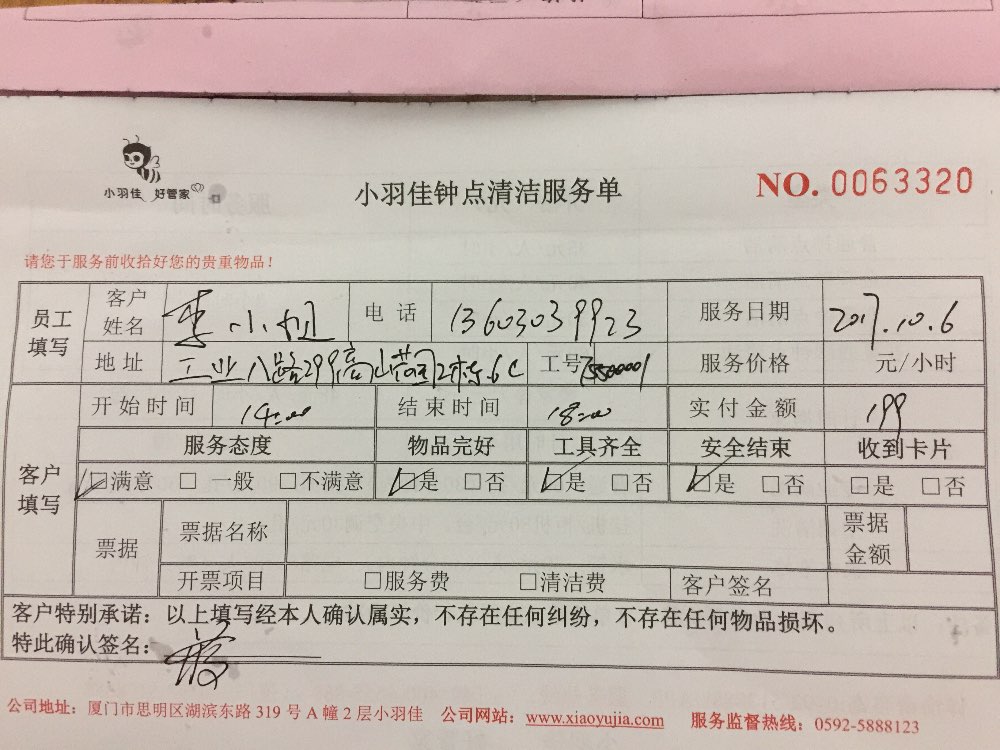 小羽佳 好管家
小羽佳钟点清洁服务单
NO. 0063320
请您于服务前收拾好您的贵重物品！
员工填写 客户姓名 李小姐 电话 13603039923 服务日期 2017.10.6
地址 工业八路299 2栋.6C 工号 服务价格 元/小时
客户填写 开始时间 14:00 结束时间 18:00 实付金额 199
服务态度 物品完好 工具齐全 安全结束 收到卡片
☑满意 □一般 □不满意 ☑是 □否 ☑是 □否 ☑是 □否 □是 □否
票据 票据名称 票据金额
开票项目 □服务费 □清洁费 客户签名
客户特别承诺：以上填写经本人确认属实，不存在任何纠纷，不存在任何物品损坏。
特此确认签名：
公司地址：厦门市思明区湖滨东路 319 号 A 幢 2 层小羽佳 公司网站：www.xiaoyujia.com 服务监督热线：0592-5888123